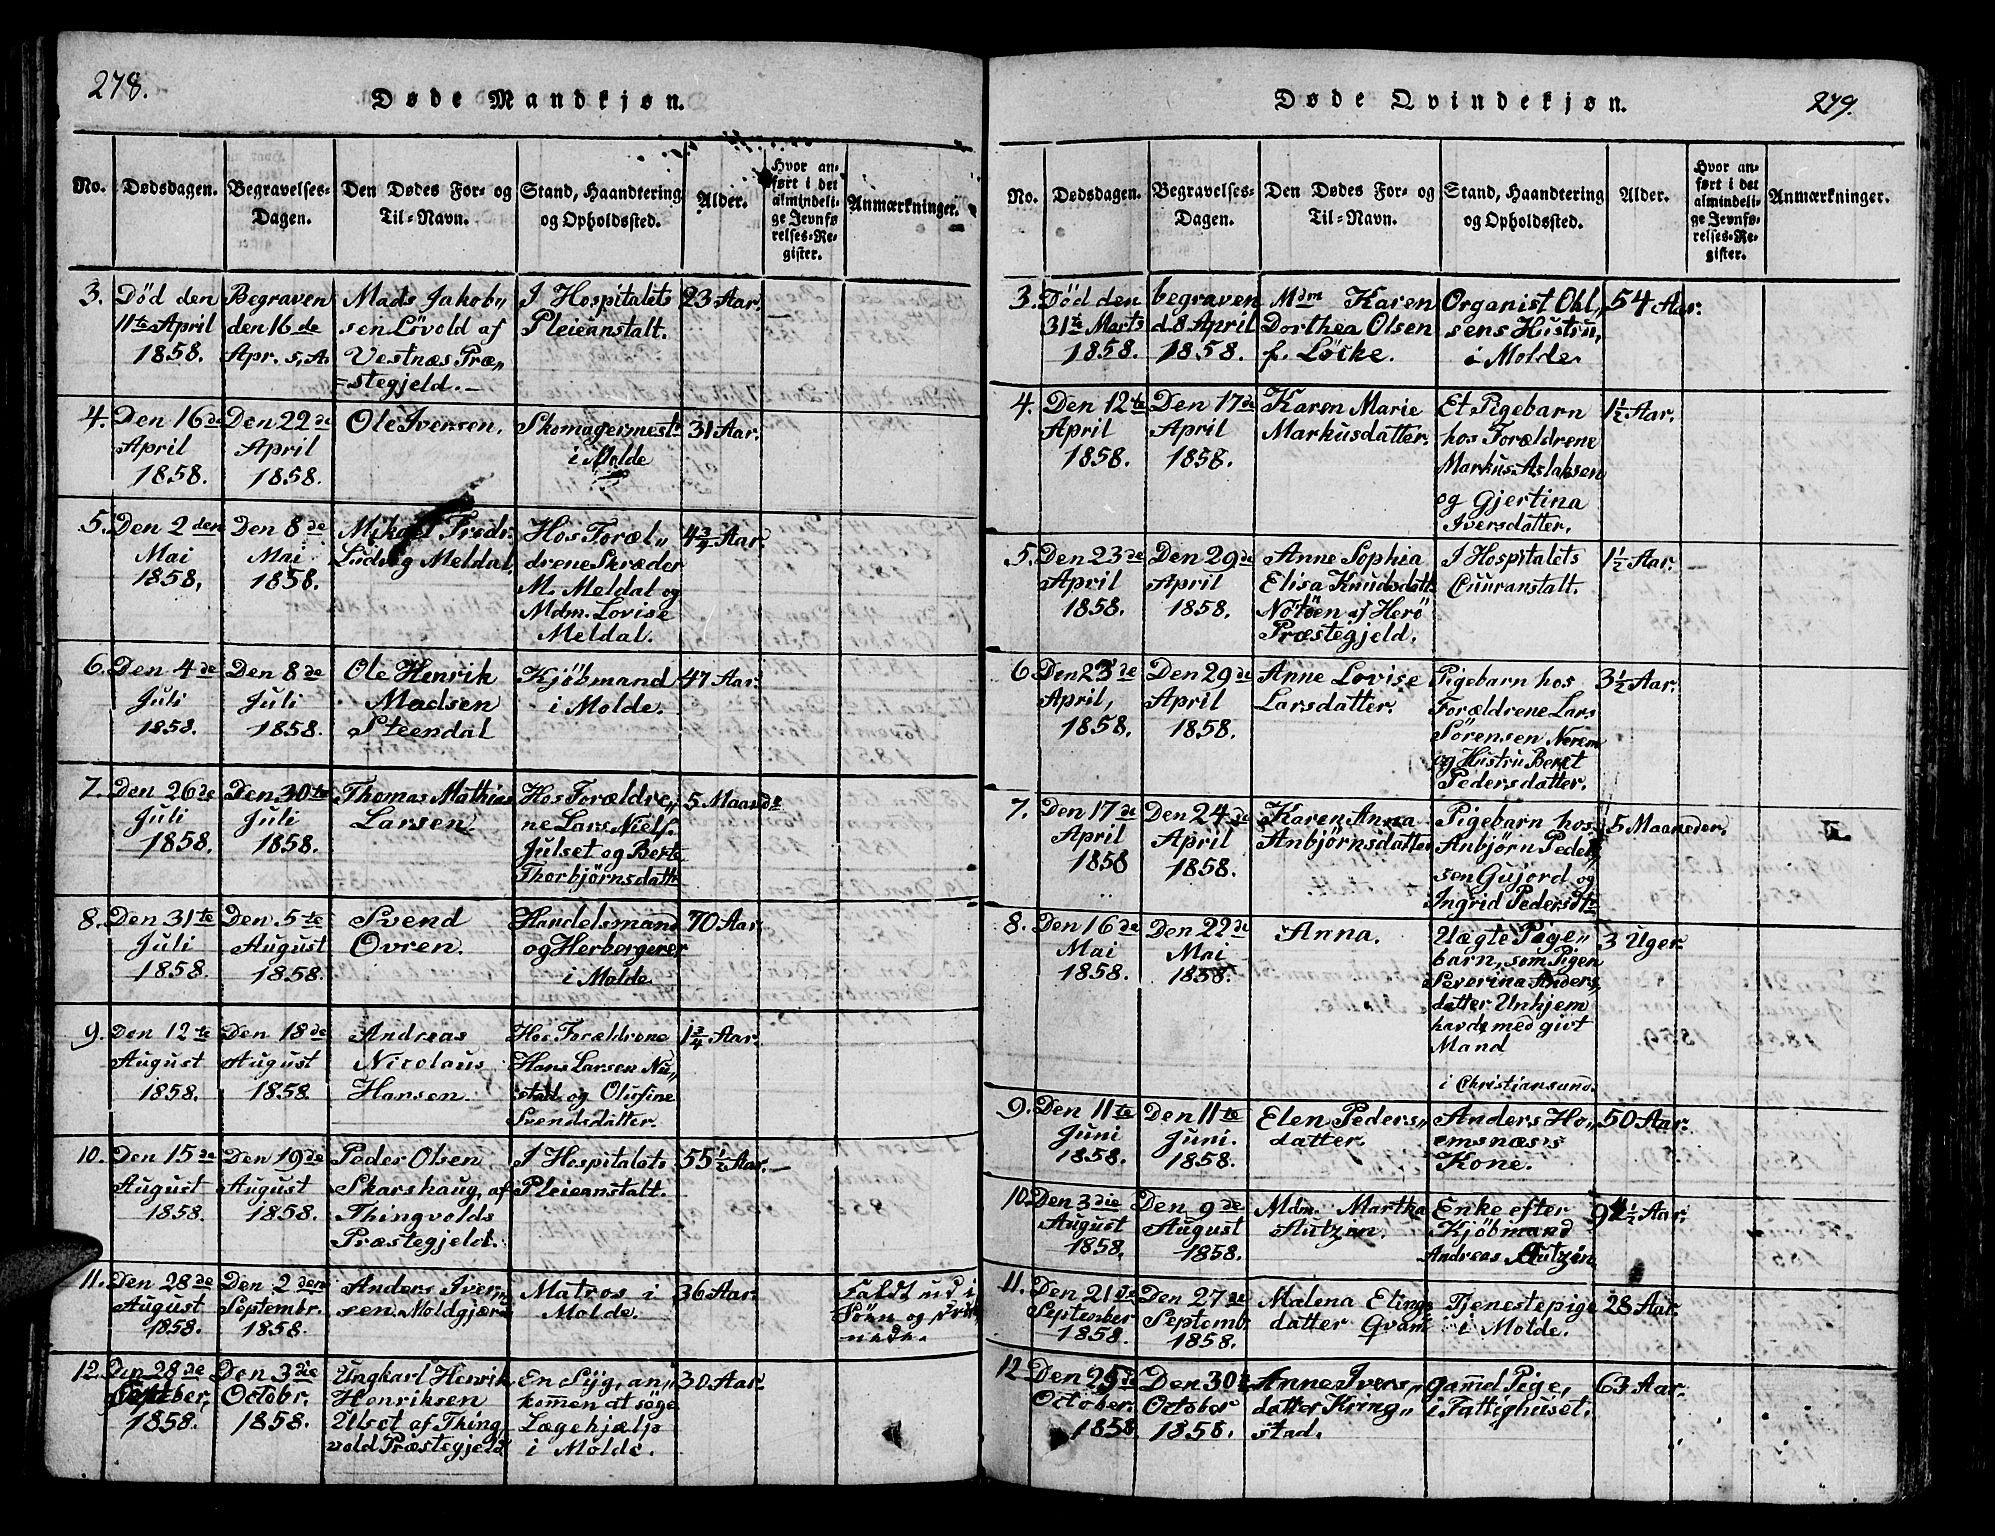 278.
Døde Mandkjøn.
No.
Dødsdagen.
Begravelses-
Dagen.
Den Dødes For- og
Til-Navn.
Stand, Haandtering
og Opholdssted.
Alder.
Hvor an-
ført i det
almindeli-
ge Jevnfø-
relses-Re-
gister.
Anmærkninger.
3.
Død den
11te April
1858.
Begraven
den 16de
Apr. s, A.
Mads Jakob„
sen Lövold af
Vestnæs Præ„
=stegjeld.
I Hospitalets
Pleieanstalt.
23 Aar.
4.
Den 16de
April
1858.
Den 22de
April
1858.
Ole Iversen.
Skomagermest.
i Molde
31 Aar.
5.
Den 2den
Mai
1858,
Den 8de
Mai
1858.
Mikael Fredr.
Ludvig Meldal.
Hos Foræl„
drene Skræder
M. Meldal og
Mdm. Lovise
Meldal.
4 3/4 Aar.
6.
Den 4de
Juli
1858.
Den 8de
Juli
1858.
Ole Henrik
Madsen
Steendal
Kjöbmand
i Molde.
47 Aar.
7.
Den 26de
Juli
1858.
Den 30te
Juli
1858.
Thomas Mathias
Larsen
Hos Forældre„
ne Lars Niels.
Julset og Berte
Thorbjörnsdattr
5 Maand.
8.
Den 31te
Juli
1858.
Den 5te
August
1858.
Svend
Ovren.
Handelsmand
og Herbergerer
i Molde.
70 Aar.
9.
Den 12te
August
1858.
Den 18de
August
1858.
Andreas
Nicolaus
Hansen.
Hos Forældrene
Hans Larsen Nu„
stad og Olufine
Svendsdatter.
1 3/4 Aar.
10.
Den 15de
August
1858.
Den 19de
August
1858.
Peder Olsen
Skarshaug, af
Thingvolds
Præstegjeld.
I Hospitalets
Pleieanstalt.
55 1/2 Aar.
11.
Den 28de
August
1858.
Den 2den
Septembr.
1858.
Anders Iver„
sen Moldgjære
Matros i
Molde.
36 Aar.
Faldt ud i
Söen og druk
nede.
12.
Den 28de
1858.
Den 3die
Octobr.
1858.
Ungkarl Henrik
Henriksen
Ulset af Thing„
vold Præstegjeld
En Syg, an„
kommen at söge
Lægehjælp
i Molde.
30 Aar.
Døde Qvindekjøn.
279.
No.
Dødsdagen.
Begravelses-
Dagen.
Den Dødes For- og
Til-Navn.
Stand, Haandtering
og Opholdssted.
Alder.
Hvor an-
ført i det
almindeli-
ge Jevnfø-
relses-Re-
gister.
Anmærkninger.
3.
Död den
31te Marts
1858.
begraven
d. 8 April
1858.
Mdm Karen
Dorthea Olsen
f. Löcke.
Organist Ohl„
sens Hustru,
i Molde.
54 Aar.
4.
Den 12te
April
1858.
Den 17de
April
1858.
Karen Marie
Markusdatter.
Et Pigebarn
hos Forældrene
Markus Aslaksen
og Gjertina
Iversdatter.
1 1/2 Aar.
5.
Den 23de
April
1858.
Den 29de
April
1858.
Anne Sophia
Elisa Knudsdattr
Notöen af Herö
Præstegjeld.
I Hospitalets
Cuuranstalt.
1 1/2 Aar.
6
Den 23de
April,
1858.
Den 29de
April
1858.
Anne Lovise
Larsdatter.
Pigebarn hos
Forældrene Lars
Sörensen Nerem
og Hustru Beret
Pedersdatter.
3 1/2 Aar.
7.
Den 17de
April
1858
Den 24de
April
1858.
Karen Anna
Anbjörnsdatter
Pigebarn hos
Anbjörn Peder„
sen Gujord og
Ingrid Pedersdtr
5 Maaneder.
8.
Den 16de
Mai
1858.
Den 22de
Mai
1858.
Anna.
Uægte Pige„
barn, som Pigen
Severina Anders,
datter Unhjem
havde med givt
Mand
i Christiansund.
3 Uger.
9.
Den 11te
Juni
1858.
Den 11te
Juni.
1858.
Elen Peders„
datter.
Anders Ho„
emsnæs's
Kone.
50 Aar.
10.
Den 3die
August
1858.
Den 9de
August
1858.
Mdm. Martha
Autzen.
Enke efter
Kjöbmand
Andreas Autzen
91 1/2 Aar.
11.
Den 21de
September
1858.
Den 27de
Septemb.
1858.
Malena Elings
datter Qvam
Tjenestepige
i Molde.
28 Aar.
12
Den 25de
October.
1858
Den 30te
October
1858.
Anne Ivers„
datter Kring„
stad.
gamel Pige,
i Fattighuset.
63 Aar.